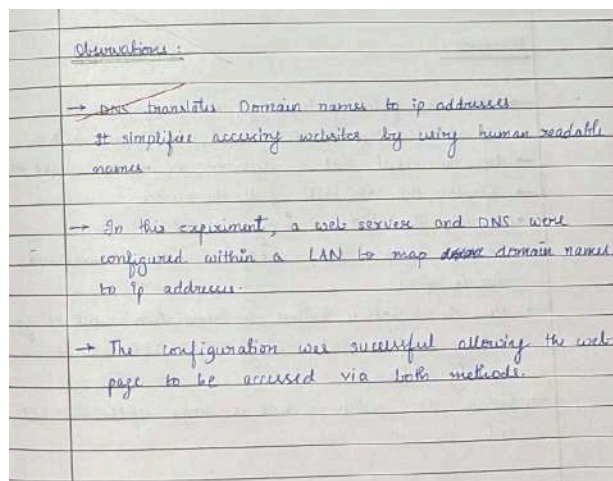 Observations :
→ DNS translates Domain names to ip addresses
It simplifies accessing websites by using human readable
names.
→ In this experiment, a web server and DNS were
configured within a LAN to map domain names
to ip addresses.
→ The configuration was sucessful allowing the web
page to be accessed via both methods.